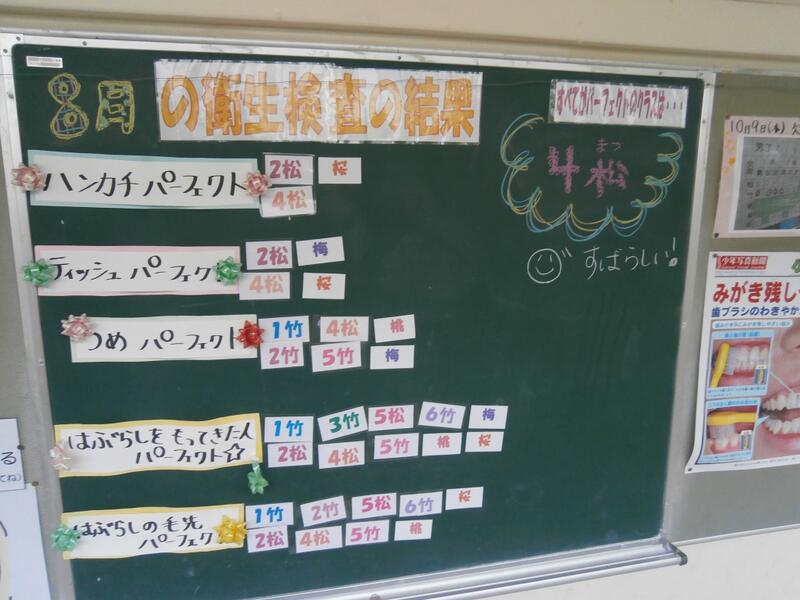 8月の衛生検査の結果
すべてがパーフェクトのクラスは・・・
まつ
4松
すばらしい!
ハンカチ パーフェクト
2松 桜
4松
ティッシュ パーフェクト
2松 梅
4松 桜
つめ パーフェクト
1竹 4松 桃
2竹 5竹 梅
はぶらしをもってきた人
パーフェクト☆
1竹 3竹 5松 6竹 梅
2松 4松 5竹 桃 桜
はぶらしの毛先
パーフェク
1竹 2竹 5松 6竹 桜
2松 4松 5竹 桃
10月9日(木)
男子
少年写真新聞
みがき残し
歯ブラシのわきやか
る
てね)